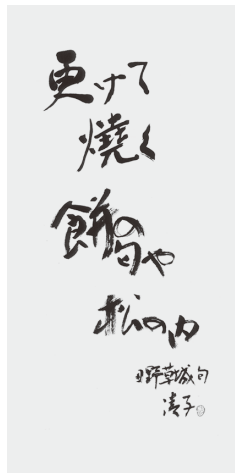 更けて
燒く
餅の匂や
松の内
日野草城句
清子